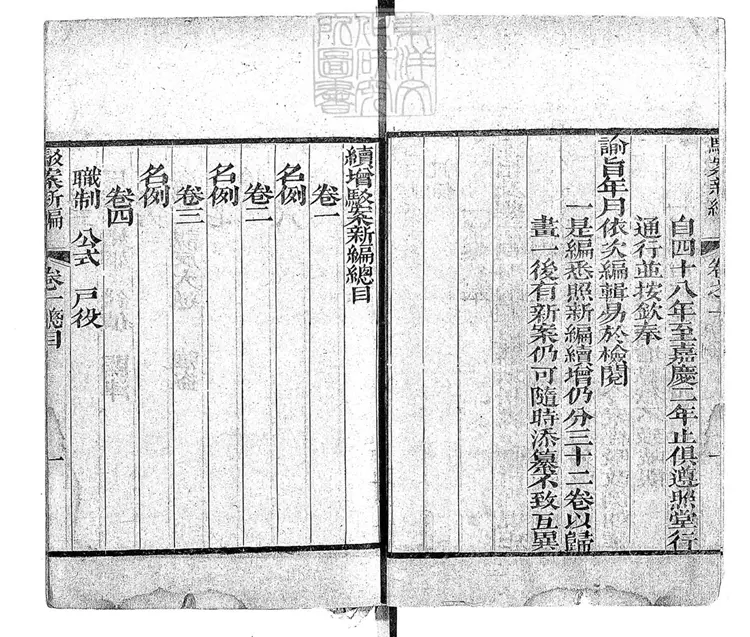 自四十八年至嘉慶二年止俱遵照堂行
通行並按欽奉
諭旨年月依次編輯易於檢閱
一是編悉照新編續增仍分三十二卷以歸
畫一後有新案仍可隨時添纂不致互異
續增駁案新編總目
卷一
名例
卷二
名例
卷三
名例
卷四
職制 公式 戶役
駁案新編 卷一總目 一
東洋文化研究所圖書